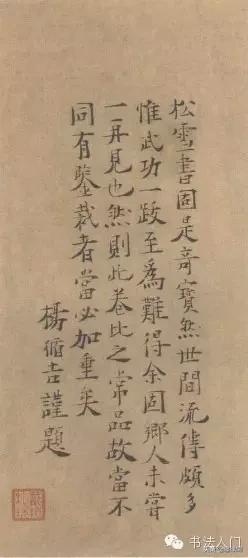 松雪書固是奇寶然世間流傳頗多
惟武功一跋至為難得余固鄉人未嘗
一再見也然則此卷比之常品故當不
同有鑒裁者當必加重矣
楊循吉謹題
书法入门